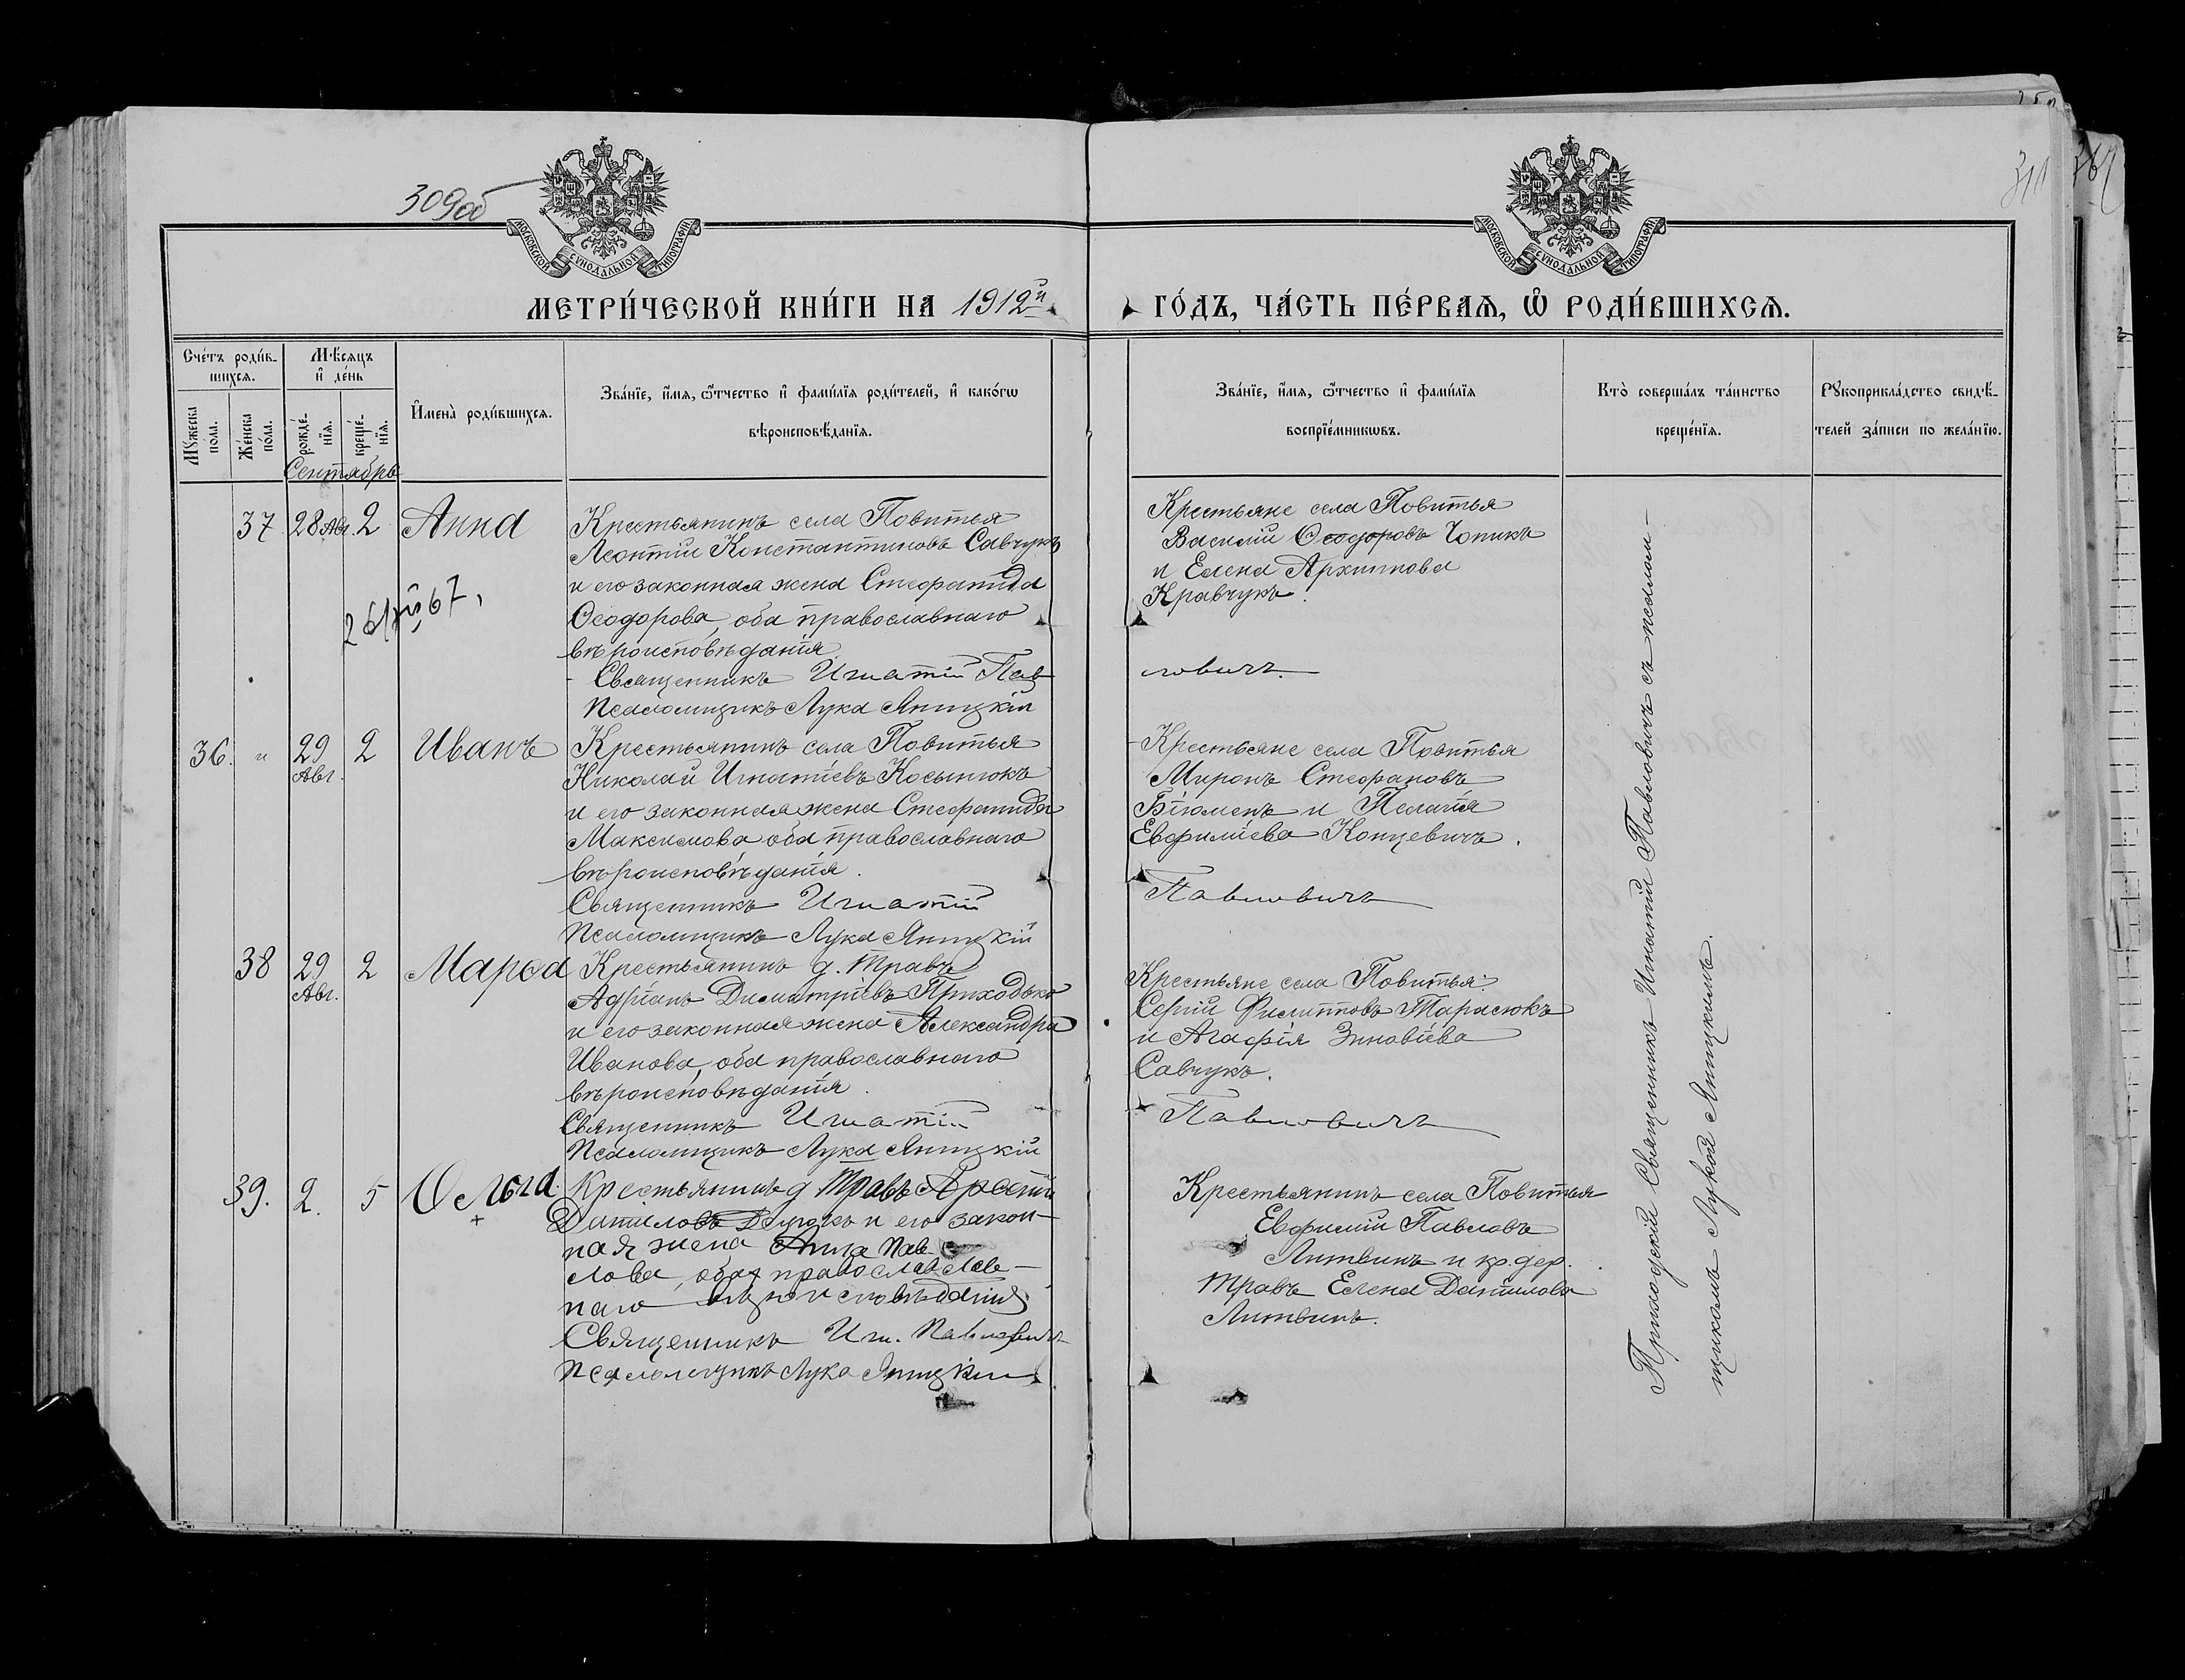 309об
МОСКОВСКОЙ СѴНОДАЛЬНОЙ ТИПОГРАФІИ
МОСКОВСКОЙ СѴНОДАЛЬНОЙ ТИПОГРАФІИ
МЕТРИ́ЧЕСКОЙ КНИ́ГИ НА 1912й
ГО́ДЪ, ЧА́СТЬ ПЕ́РВАѦ, Ѽ РОДИ́ВШИХСѦ.
Сче́тъ роди́в-
шихсѧ.
Мꙋжеска
по́ла.
Же́нска
по́ла.
Мѣ́сѧцъ
и҆ де́нь
рожде́-
нїѧ.
креще́-
нїѧ.
И҆мена̀ роди́вшихсѧ.
Зва́нїе, и҆́мѧ, ѻ҆́тчество и҆ фами́лїѧ роди́телей, и҆ како́гѡ
вѣроисповѣ́данїѧ.
Зва́нїе, и҆́мѧ, ѻ҆́тчество и҆ фами́лїѧ
воспрїе́мникѡвъ.
Кто̀ соверша́лъ та́инство
креще́нїѧ.
Рꙋкоприкла́дство свидѣ́-
телей за́писи по жела́нїю.
Сентябрь
37 28 Авг. 2 Анна
Крестьянинъ села Повитья
Леонтій Константиновъ Савчукъ
и его законная жена Стефанида
Ѳеодорова, оба православнаго
вѣроисповѣданія.
Священникъ Игнатій Пав
ловичъ.
Псаломщикъ Лука Яницкій
Крестьяне села Повитья
Василій Ѳеодоровъ Чопикъ
и Елена Архипова
Кравчукъ.
36. " 29 Авг. 2 Иванъ
Крестьянинъ села Повитья
Николай Игнатіевъ Косынюкъ
и его законная жена Стефанида
Максимова оба православнаго
вѣроисповѣданія.
Священникъ Игнатій
Павловичъ
Псаломщикъ Лука Яницкій
Крестьяне села Повитья
Миронъ Стефановъ
и Пелагія
Евфиміева Концевичъ.
38 29 Авг. 2 Марѳа
Крестьянинъ д. Травъ
Адріанъ Димитріевъ Приходько
и его законная жена Александра
Иванова, оба православнаго
вѣроисповѣданія.
Священникъ Игнатій
Павловичъ
Псаломщикъ Лука Яницкій
Крестьяне села Повитья:
Сергій Филипповъ Тарасюкъ
и Агафія Зиновіева
Савчукъ.
39. 2. 5 Ольга
Крестьянинъ д Травъ Арсеній
Даниловъ и его закон-
ная жена Анна Пав
лова, оба православ-
наго вѣроисповѣданія
Священникъ Игн. Павловичъ
Псаломщикъ Лука Яницкій
Крестьянинъ села Повитья
Евфимій Павловъ
Литвинъ и кр. дер.
Травъ Елена Данилова
Литвинъ.
Приходскій Священникъ Игнатій Павловичъ съ псалом-
щикомъ Лукой Яницкимъ.